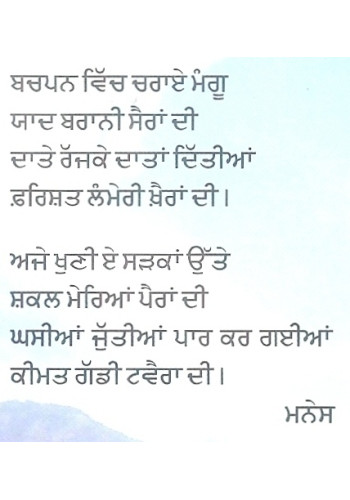 ਬਚਪਨ ਵਿੱਚ ਚਰਾਏ ਮੰਗੂ
ਯਾਦ ਬਰਾਨੀ ਸੈਰਾਂ ਦੀ
ਦਾਤੇ ਰੱਜਕੇ ਦਾਤਾਂ ਦਿੱਤੀਆਂ
ਫ਼ਰਿਸ਼ਤ ਲੰਮੇਰੀ ਖ਼ੈਰਾਂ ਦੀ।
ਅਜੇ ਖੁਣੀ ਏ ਸੜਕਾਂ ਉੱਤੇ
ਸ਼ਕਲ ਮੇਰਿਆਂ ਪੈਰਾਂ ਦੀ
ਘਸੀਆਂ ਜੁੱਤੀਆਂ ਪਾਰ ਕਰ ਗਈਆਂ
ਕੀਮਤ ਗੱਡੀ ਟਵੈਰਾ ਦੀ।
ਮਨੇਸ